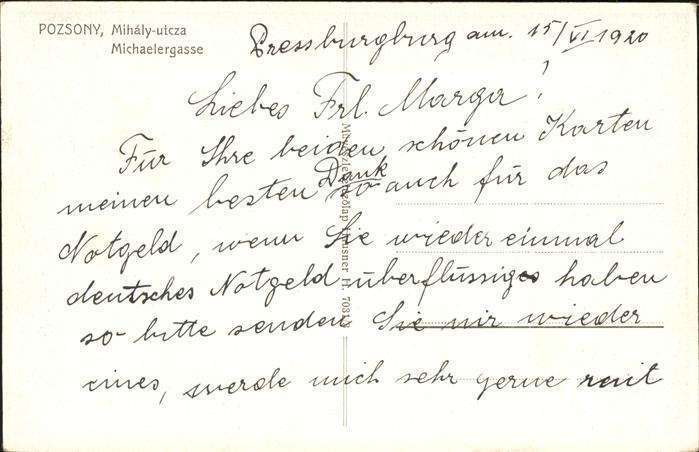 POZSONY, Mihály-utcza
Michaelergasse
Pressburgburg am. 15/VI 1920
Liebes Frl. Marga!
Für Ihre beiden schönen Karten
meinen besten Dank so auch für das
Notgeld, wenn Sie wieder einmal
deutsches Notgeld überflüssiges haben
so bitte senden Sie mir wieder
eines, werde mich sehr gerne revit